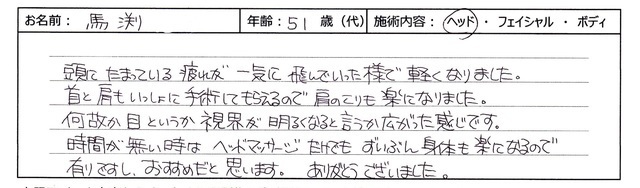 お名前： 馬渕 年齢：51 歳（代） 施術内容：ヘッド ・ フェイシャル ・ ボディ
頭にたまっている疲れが一気に飛んでいった様で軽くなりました。
首と肩もいっしょに手術してもらえるので肩のこりも楽になりました。
何故か目というか視界が明るくなると言うか広がった感じです。
時間が無い時はヘッドマッサージだけでもずいぶん身体も楽になるので
有りですし、おすすめだと思います。 ありがとうございました。